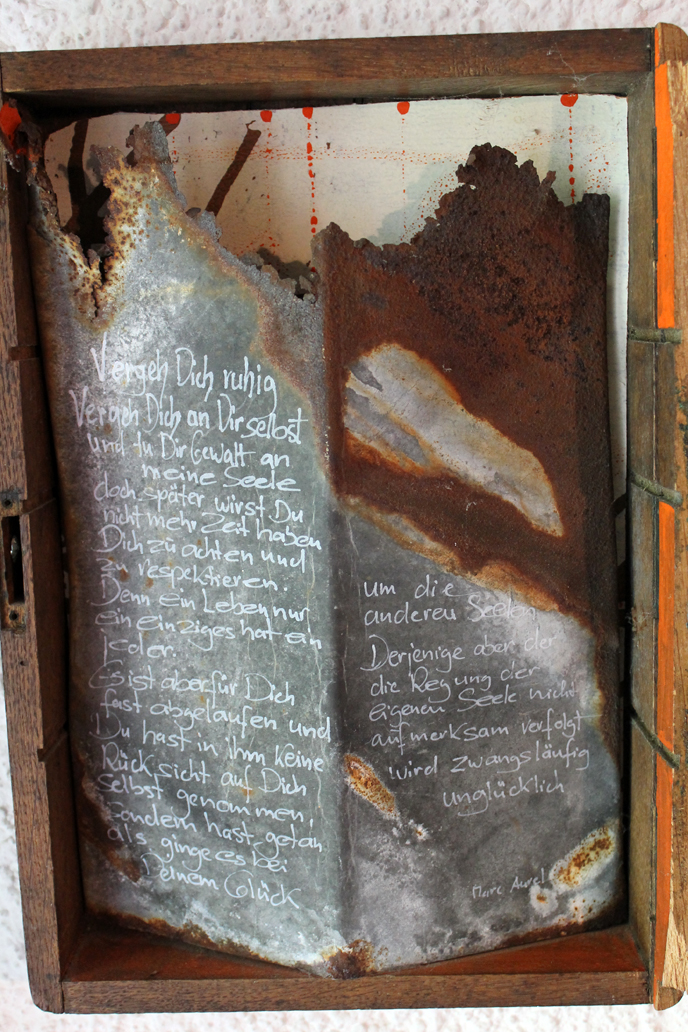 Vergeh Dich ruhig
Vergeh Dich an Dir selbst
und tu Dir Gewalt an
meine Seele
doch später wirst Du
nicht mehr Zeit haben
Dich zu achten und
zu respektieren.
Denn ein Leben nur
ein einziges hat ein
jeder.
Es ist aber für Dich
fast abgelaufen und
Du hast in ihm keine
Rücksicht auf Dich
selbst genommen,
sondern hast getan
als ginge es bei
Deinem Glück
um die
anderen Seelen
Derjenige aber der
die Regung der
eigenen Seele nicht
aufmerksam verfolgt
wird zwangsläufig
unglücklich
Marc Aurel